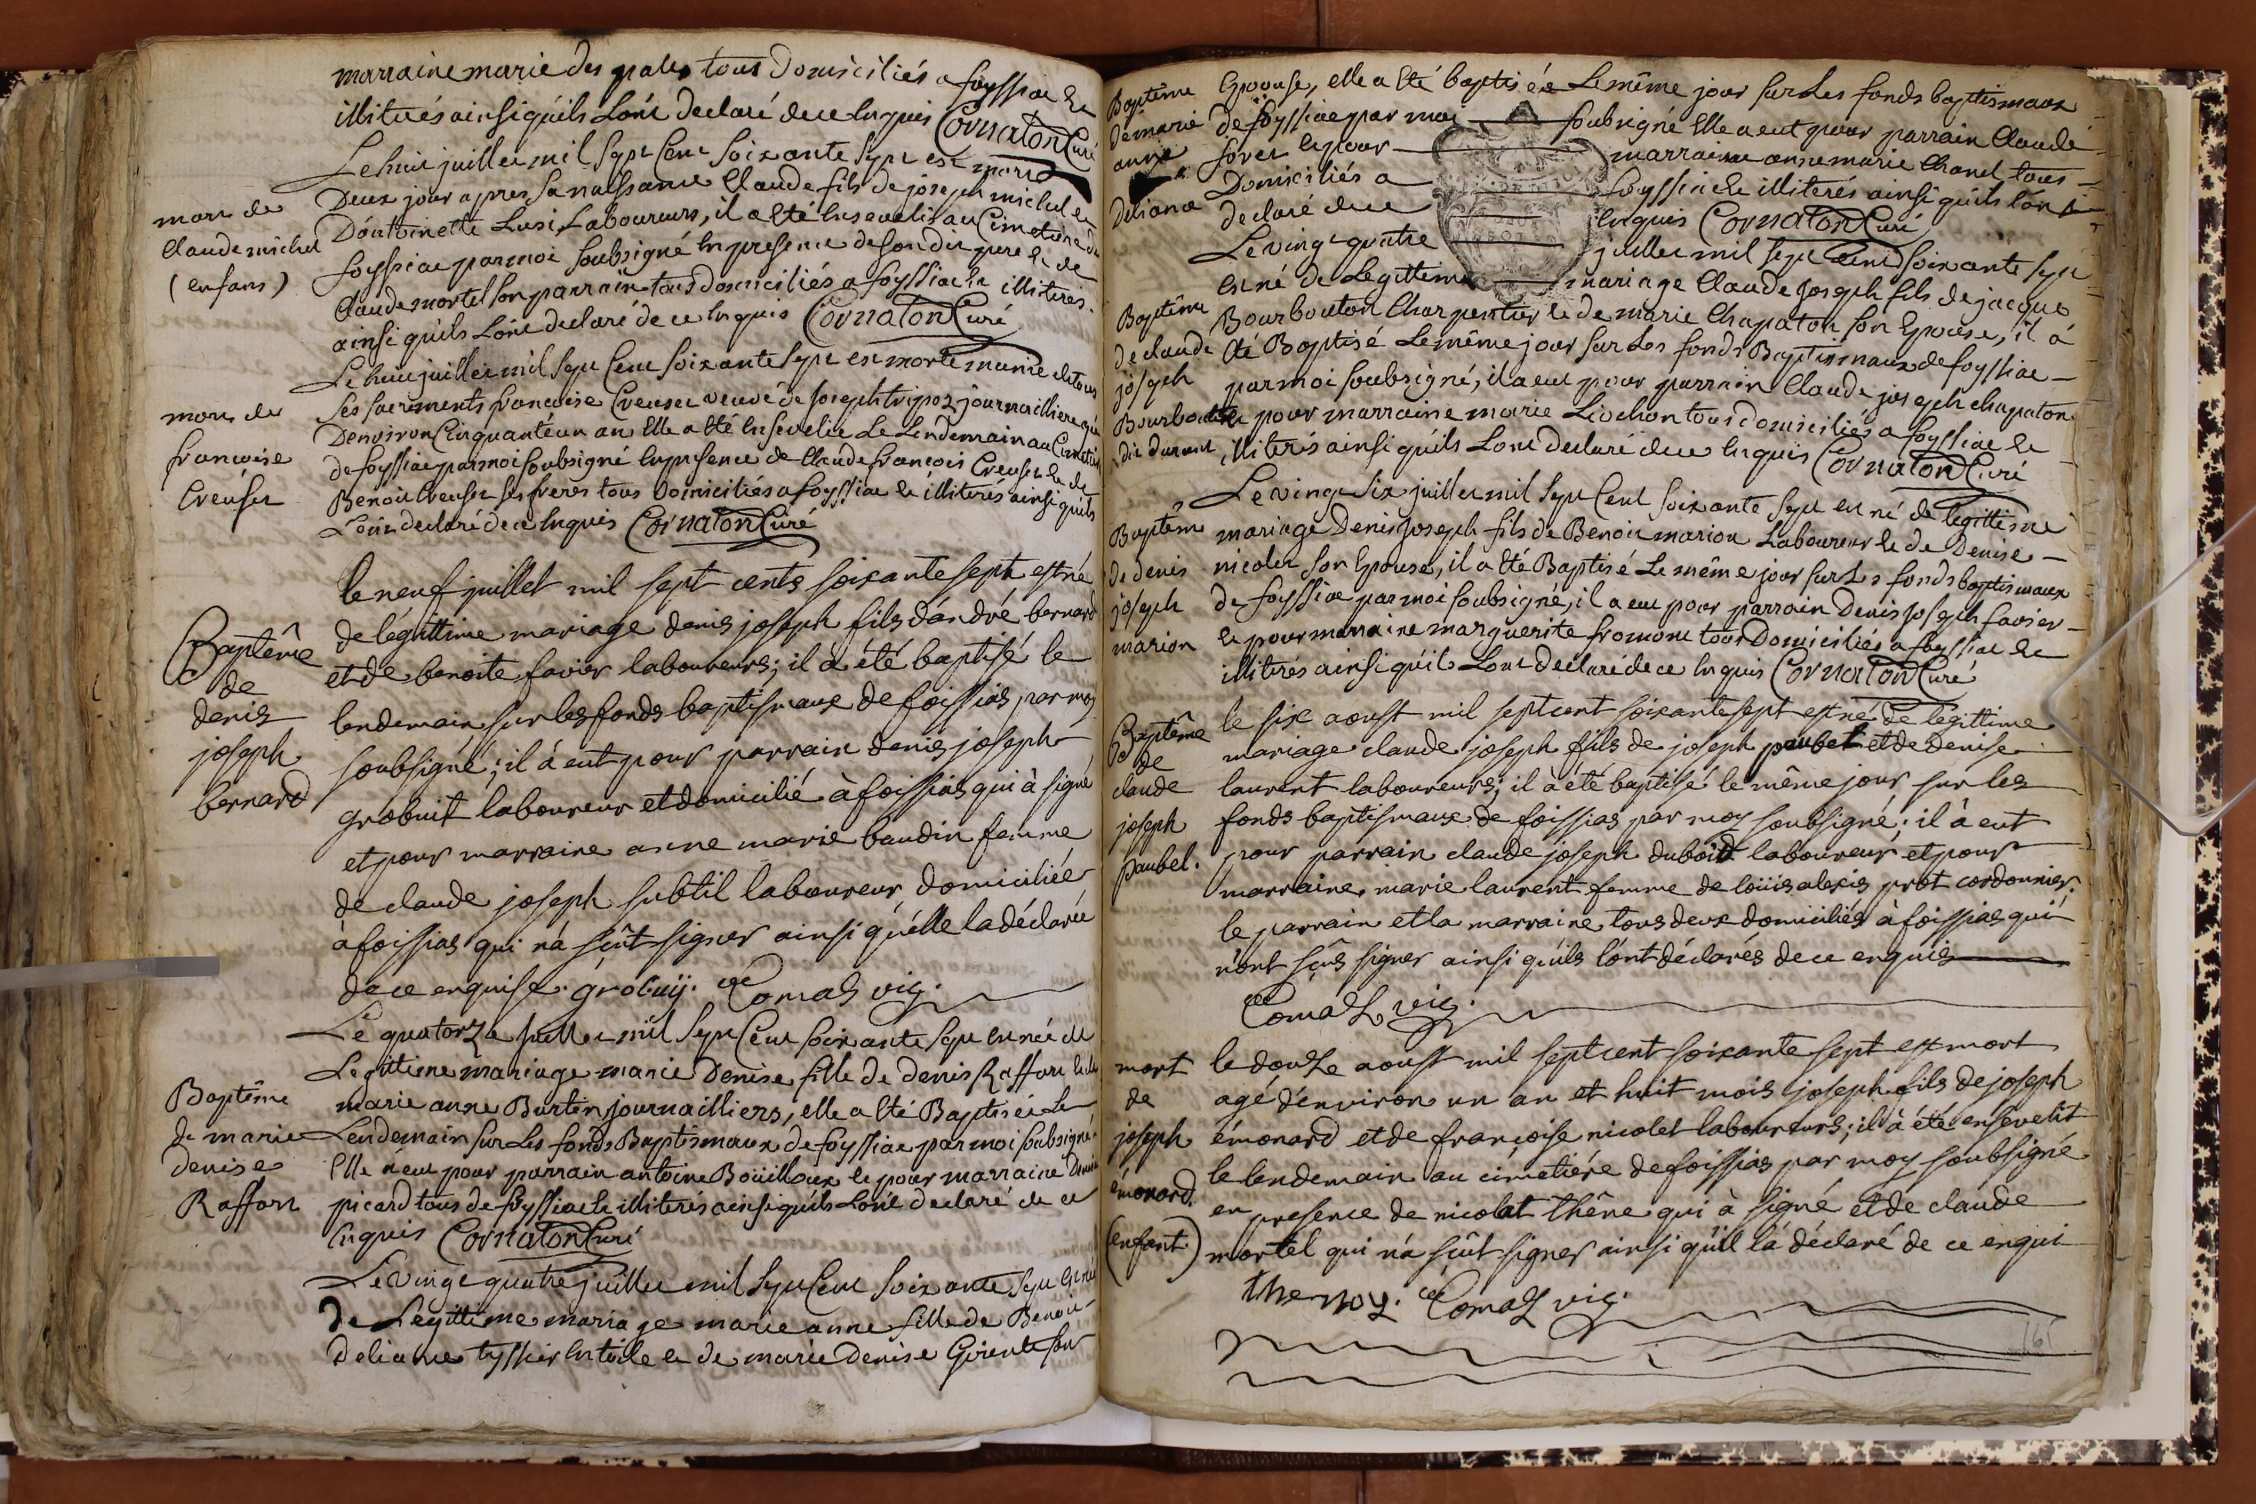 marraine marie des
tous domiciliés a foyssiac et
illiterés ainsi qu'ils L'ont declaré de ce Enquis Cornaton Curé
Le huit juillet mil Sept Cent Soixante Sept est mort
Deux jour apres Sa naissance Claude fils de joseph michel et
mort de
Claude michel
(enfans)
D'antoinette Lusi Laboureurs, il a Eté Ensevelis au Cimetiere de
foyssiac par moi Soubsigné En presence de Son dit pere et de
Claude mortel Son parrain tous domiciliés a foyssiac et illiterés
ainsi qu'ils L'ont declaré de ce Enquis Cornaton Curé
Le huit juillet mil Sept Cent Soixante Sept est morte munie de tous
mort de
francoise
Creuser
Ses Sacrements francoise Creuser veuve de joseph journailliere
D'environ Cinquante un an Elle a Eté Ensevelie Le Lendemain au Cimetiere
de foyssiac par moi Soubsigné En presence de Claude francois Creuser et de
Benoit Creuser Ses freres tous Domiciliés a foyssiac et illiterés ainsi qu'ils
L'ont declaré de ce Enquis Cornaton Curé
le neuf juillet mil sept cents soixante sept est né
Baptême
de
denis
joseph
bernard
de légittime mariage denis joseph fils d'andré bernard
et de benoite favier laboureurs; il à été baptisé le
lendemain sur les fonds baptismaux de foissias par moy
soubsigné; il à eut pour parrain denis joseph
grobuit laboureur et domicilié à foissias qui à signé
et pour marraine anne marie baudin femme
de claude joseph subtil laboureur domiciliée
à foissias qui n'à sçût signer ainsi qu'elle la déclarée
de ce enquise. grobuij. Comas vic.
Le quatorze juillet mil Sept Cent Soixante Sept est née de
Baptême
de marie
denise
Raffort
Legittime mariage marie Denise fille de denis Raffort et de
marie anne Burtin journailliers, elle a Eté Baptisée Le
Lendemain Sur Les fonds Baptismaux de foyssiac par moi Soubsigné
Elle a eut pour parrain antoine Boüilloux et pour marraine Denise
picard tous de foyssiac et illiterés ainsi qu'ils L'ont declaré de ce
Enquis Cornaton Curé
Le vingt quatre juillet mil Sept Cent Soixante Sept Est née
de Legittime mariage marie anne fille de Benoit
Deliance tyssier En toile et de marie Denise Son
Baptême
de marie
anne
Deliance
Epouse, elle a Eté baptisée Le même jour Sur Les fonds baptismaux
de foyssiac par moi Soubsigné Elle a eut pour parrain Claude
foret et pour marraine anne marie Chanel tous
Domiciliés a foyssiac et illiterés ainsi qu'ils L'ont
declaré de ce Enquis Cornaton Curé
Le vingt quatre juillet mil Sept Cent Soixante Sept
Est né de Legittime mariage Claude joseph fils de jacque
Baptême
de claude
joseph
Bourbouton
dit durand
Bourbouton Charpentier et de marie Chapaton Son Epouse, il à
Eté Baptisé Le même jour Sur Les fonds Baptismaux de foyssiac
par moi Soubsigné, il a eut pour parrain Claude joseph chapaton
et pour marraine marie Liochon tous domiciliés a foyssiac et
illiterés ainsi qu'ils L'ont declaré de ce Enquis Cornaton Curé
Le vingt Six juillet mil Sept Cent Soixante Sept est né de legittime
Baptême
de denis
joseph
marion
mariage Denis joseph fils de Benoit marion Laboureur et de Denise
nicolet Son Epouse, il a Eté Baptisé Le même jour Sur Les fonds baptismaux
de foyssiac par moi Soubsigné, il a eut pour parrain Denis joseph favier
et pour marraine marguerite fromont tous Domiciliés a foyssiac et
illiterés ainsi qu'ils L'ont declaré de ce Enquis Cornaton Curé
le six aoust mil sept cent soixante sept est né de légittime
Baptême
de
claude
joseph
paubel.
mariage claude joseph fils de joseph paubel et de denise
laurent laboureurs; il à été baptisé le même jour sur les
fonds baptismaux de foissias par moy soubsigné; il à eut
pour parrain claude joseph dubois laboureur et pour
marraine marie laurent femme de loüis alexis prot cordonnier.
le parrain et la marraine tous deux domiciliés à foissias qui
n'ont sçûs signer ainsi qu'ils l'ont déclarés de ce enquis
Comas vic.
le douze aoust mil sept cent soixante sept est mort
mort
de
joseph
émonard.
(enfant)
agé d'environ un an et huit mois joseph fils de joseph
émonard et de françoise nicolet laboureurs; il à été ensevelit
le lendemain au cimetiére de foissias par moy soubsigné
en presence de nicolat thêne qui à signé et de claude
mortel qui n'à sçût signer ainsi qu'il l'à déclaré de ce enqui
Comas vic.
161